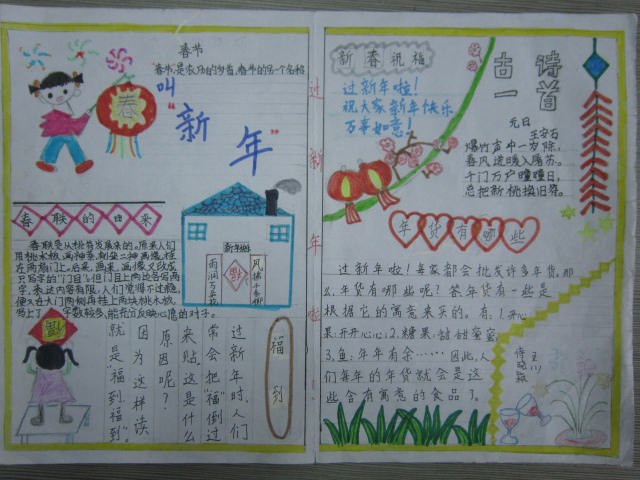 春节
春节，是农历的岁首，春节的另一个名称
叫
“新年”
春
春联的由来
春联是从桃符发展来的。原来人们
用桃木板，画神荼、郁垒二神画像，挂
在两扇门上。后来，画
只写字的“门目”。但门目上两边各写两
字，表达内容有限，人们觉得不过瘾，
便又在大门两侧再挂上两块桃木板，
写上了
字数较多，能充分反映心愿的对子。
新年好
风
雨润万
福
福到
过新年时，人们
常会把“福”倒过
来贴，这是什么
原因呢？
因为这样读
就是“福到，福到”。
过新年啦！
新春祝福
过新年啦！
祝大家新年快乐
万事如意！
古诗
一首
元日
王安石
爆竹声中一岁除，
春风送暖入屠苏。
千门万户曈曈日，
总把新桃换旧符。
年货有哪些
过新年啦！每家都会批发许多年货。那
么，年货有哪些呢？答：年货有一些是
根据它的寓意来买的。有：1.开心
果：开开心心；2.糖果：甜甜蜜蜜；
3.鱼：年年有余……因此，人
们每年的年货就会是这
些含有寓意的食品了。